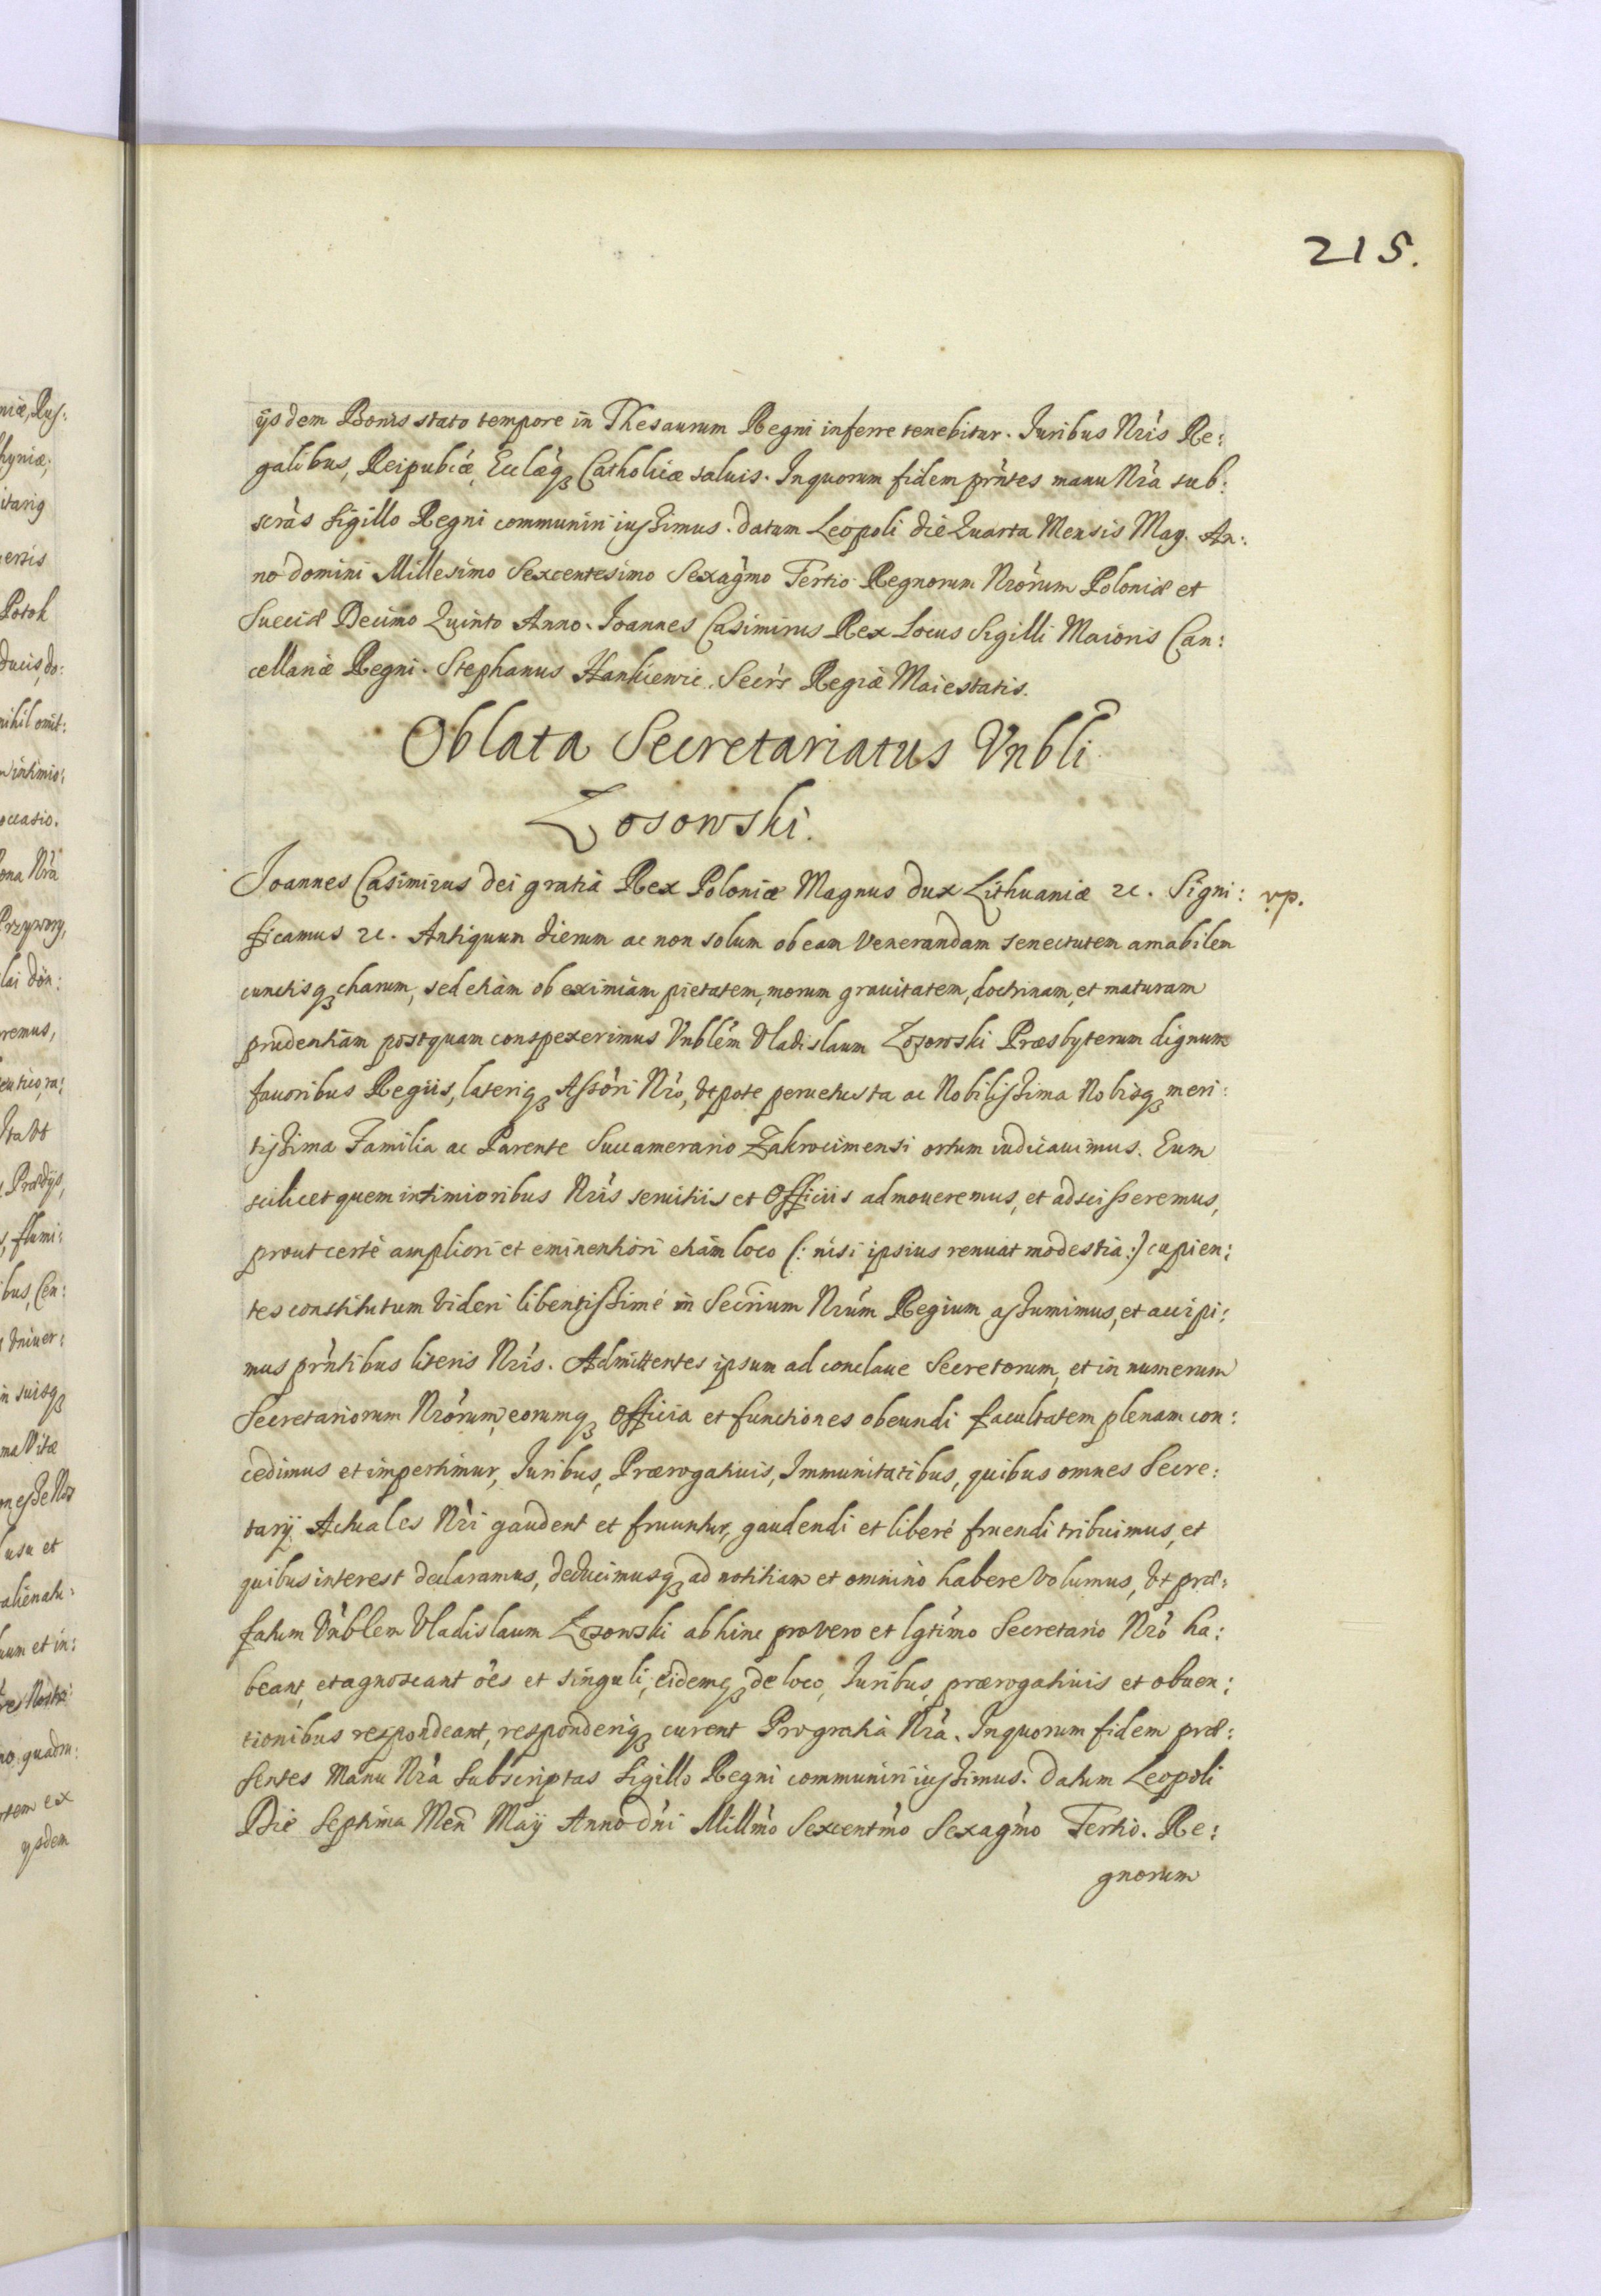 215.
ijsdem Bonis stato tempore in Thesaurum Regni inferre tenebitur. Iuribus Nris Re:
galibus, Reipubcæ, Ecclæq3 Catholicæ saluis. Inquorum fidem prntes manu Nra sub:
scras Sigillo Regni communiri iussimus. datum Leopoli die Quarta Mensis May. An:
no domini Millesimo Sexcentesimo Sexagmo Tertio Regnorum Nrorum Poloniæ et
Sueciæ Decimo Quinto Anno. Joannes Casimirus Rex Locus Sigilli Maioris Can:
cellariæ Regni. Stephanus Hankiewic. Secrs Regiæ Maiestatis.
Oblata Secretariatus Vnbli
Zosowski.
Joannes Casimirus dei gratia Rex Poloniæ Magnus dux Lithuaniæ etc. Signi: vp.
ficamus etc. Antiquum dierum ac non solum ob eam Venerandam senectutem amabilem
cunctisq3 charum, sed etiam ob eximiam pietatem, morum grauitatem, doctrinam, et maturam
prudentiam postquam conspexerimus Vnblem Vladislaum Zosowski Præsbyterum dignum
fauoribus Regiis, laterisq3 Assori Nro, Vtpote peruetusta ac Nobilissima Nobisq3 meri:
tissima Familia ac Parente Succamerario Zakrocimensi ortum iudicauimus. Eum
scilicet quem intimioribus Nris seruitiis et Officiis admoueremus, et adscisseremus,
prout certe ampliori et eminentiori etiam loco (: nisi ipsius renuat modestia :) cupien:
tes constitutum Videri libentissimé in Secrium Nrum Regium assumimus, et accipi:
mus prntibus literis Nris. Admittentes ipsum ad conclaue Secretorum, et in numerum
Secretariorum Nrorum, eorumq3 Officia et functiones obeundi facultatem plenam con:
cedimus et impertimur, Iuribus, Prærogatiuis, Immunitatibus, quibus omnes Secre:
tarij Actuales Nri gaudent et fruuntur, gaudendi et liberé fruendi tribuimus, et
quibus interest declaramus, deducimusq3 ad notitiam et omnino habere Volumus, Vt præ:
fatum Vnblem Vladislaum Zosowski abhinc pro vero et lgtimo Secretario Nro ha:
beant, et agnoscant oes et singuli, eidemq3 de loco, Iuribus, prærogatiuis et obuen:
tionibus respondeant, responderiq3 curent Pro gratia Nra. Inquorum fidem præ:
sentes Manu Nra Subscriptas Sigillo Regni communiri iussimus. Datum Leopoli
Die Septima Men Maij Anno dni Millmo Sexcentmo Sexagmo Tertio. Re:
gnorum